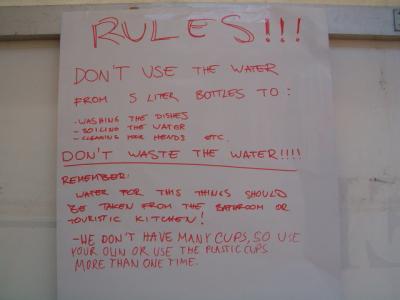 RULES!!!
DON'T USE THE WATER
FROM 5 LITER BOTTLES TO:
-WASHING THE DISHES
-BOILING THE WATER
-CLEANING YOUR HEADS ETC.
DON'T WASTE THE WATER!!!!
REMEMBER:
WATER FOR THIS THINGS SHOULD
BE TAKEN FROM THE BATHROOM OR
TOURISTIC KITCHEN!
-WE DON'T HAVE MANY CUPS, SO USE
YOUR OWN OR USE THE PLASTIC CUPS
MORE THAN ONE TIME.